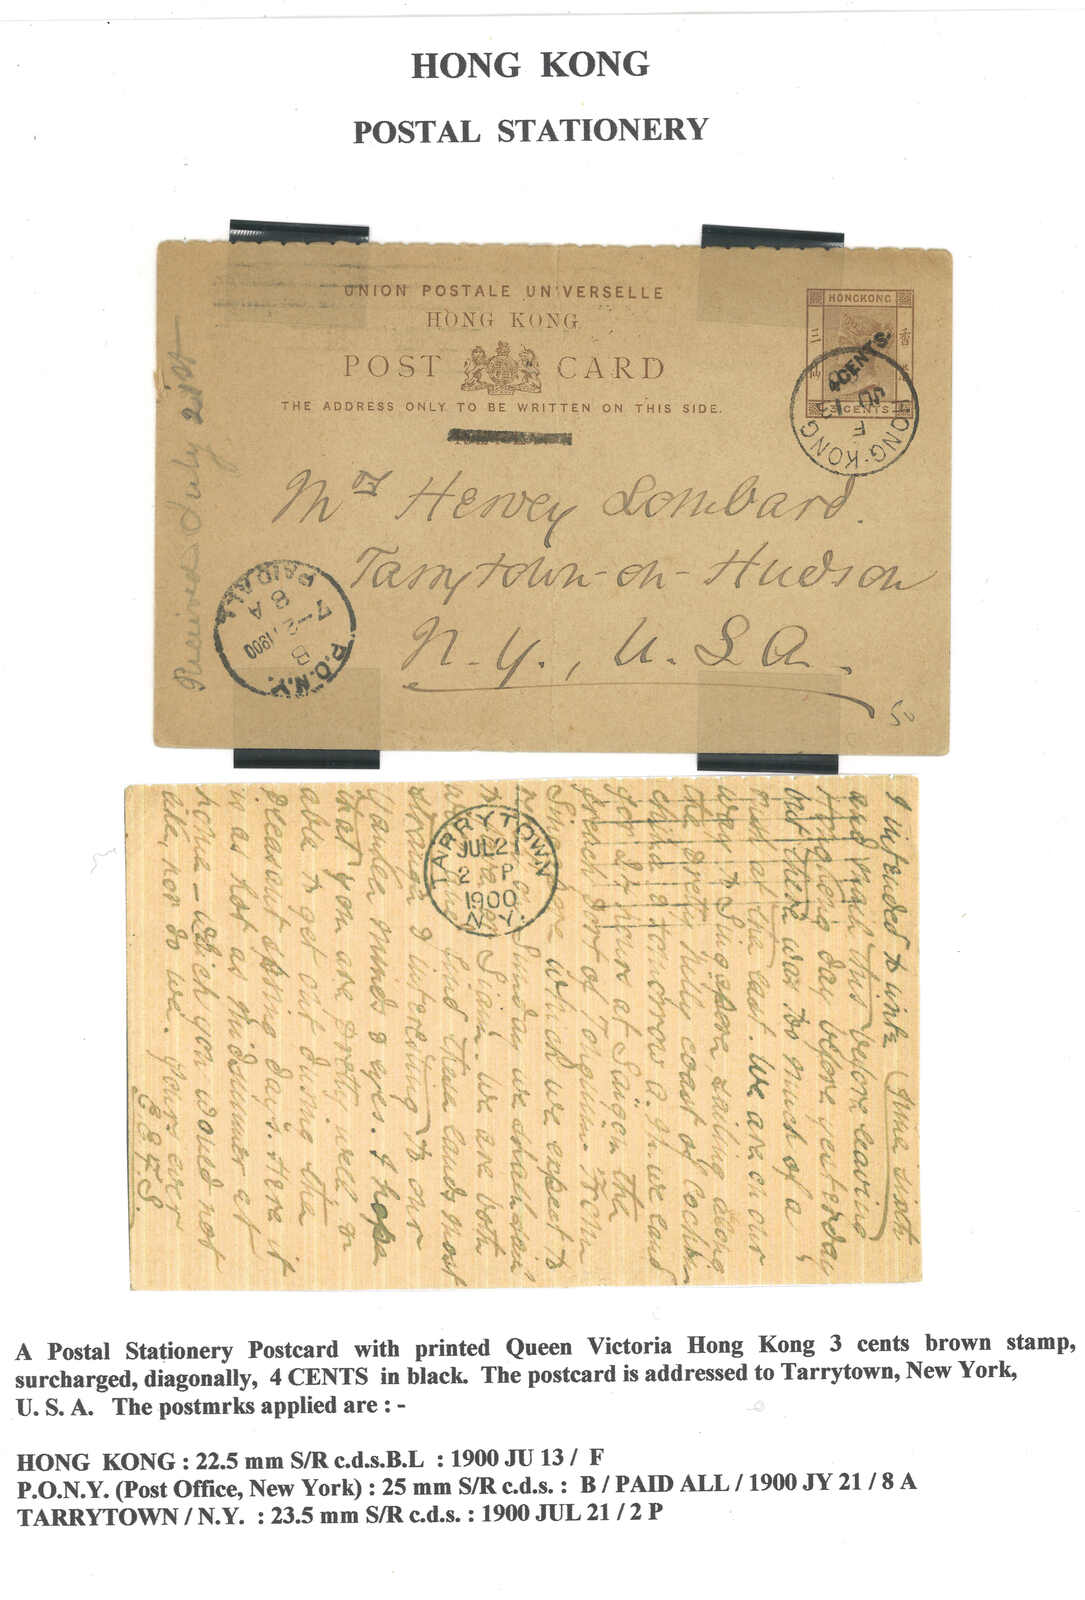 HONG KONG
POSTAL STATIONERY
UNION POSTALE UNIVERSELLE
HONG KONG
POST CARD
THE ADDRESS ONLY TO BE WRITTEN ON THIS SIDE.
HONGKONG
三 香
仙
3 CENTS
4 CENTS.
HONG-KONG
F
JU
Received July 21st
Mrs Hervey Lombard.
Tarrytown-on-Hudson
N.Y., U.S.A.
P.O.N.Y.
B
1900
8 A
PAID ALL
TARRYTOWN
JUL 21
2 P
1900
N.Y.
June sixth
I intended to write
and mail this before leaving
Hongkong day before yesterday
but there was too much of a
rush at the last. We are on our
way to Singapore, sailing along
the pretty hilly coast of Cochin
china & tomorrow a.m. we land
for 24 hours at Saigon the
french port of Tonquin. From
Singapore which we expect to
Sunday we shall sail
Siam. We are both
well and find these lands most
strange & interesting to our
Yankee minds & eyes. I hope
that you are pretty well &
able to get out during the
pleasant spring days. Here it
is as hot as midsummer at
home — which you would not
like, nor do we. Yours ever
E.E.F.S.
A Postal Stationery Postcard with printed Queen Victoria Hong Kong 3 cents brown stamp,
surcharged, diagonally, 4 CENTS in black. The postcard is addressed to Tarrytown, New York,
U. S. A. The postmrks applied are : -
HONG KONG : 22.5 mm S/R c.d.s.B.L : 1900 JU 13 / F
P.O.N.Y. (Post Office, New York) : 25 mm S/R c.d.s. : B / PAID ALL / 1900 JY 21 / 8 A
TARRYTOWN / N.Y. : 23.5 mm S/R c.d.s. : 1900 JUL 21 / 2 P